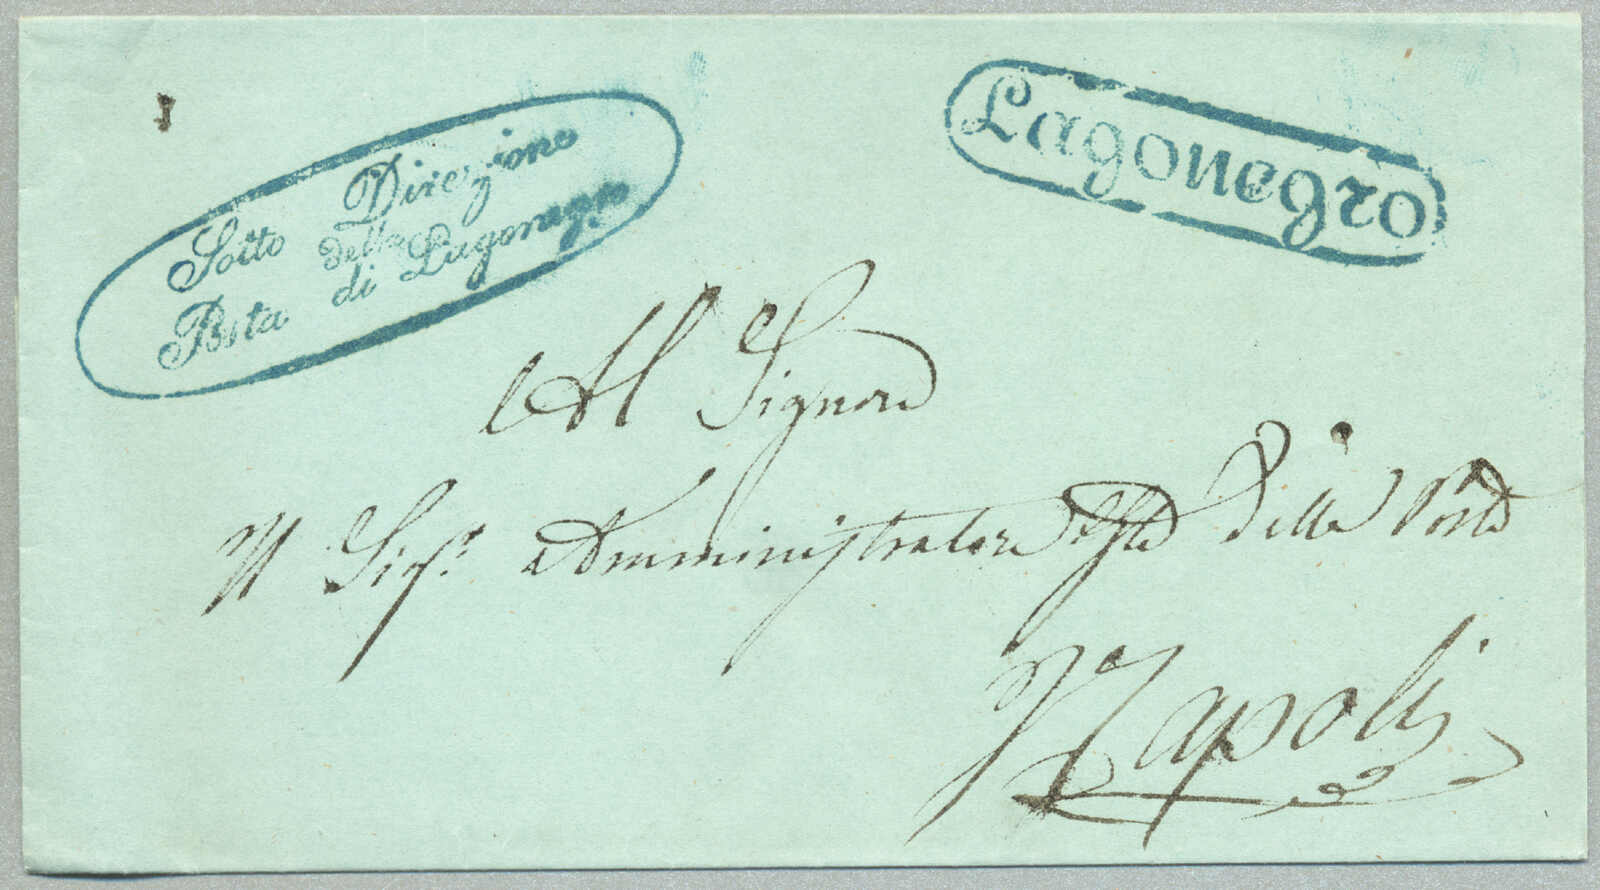 Sotto Direzione
della
Posta di Lagonegro
Lagonegro
Al Signore
Il Sig.r Amministratore Gle delle Poste
Napoli